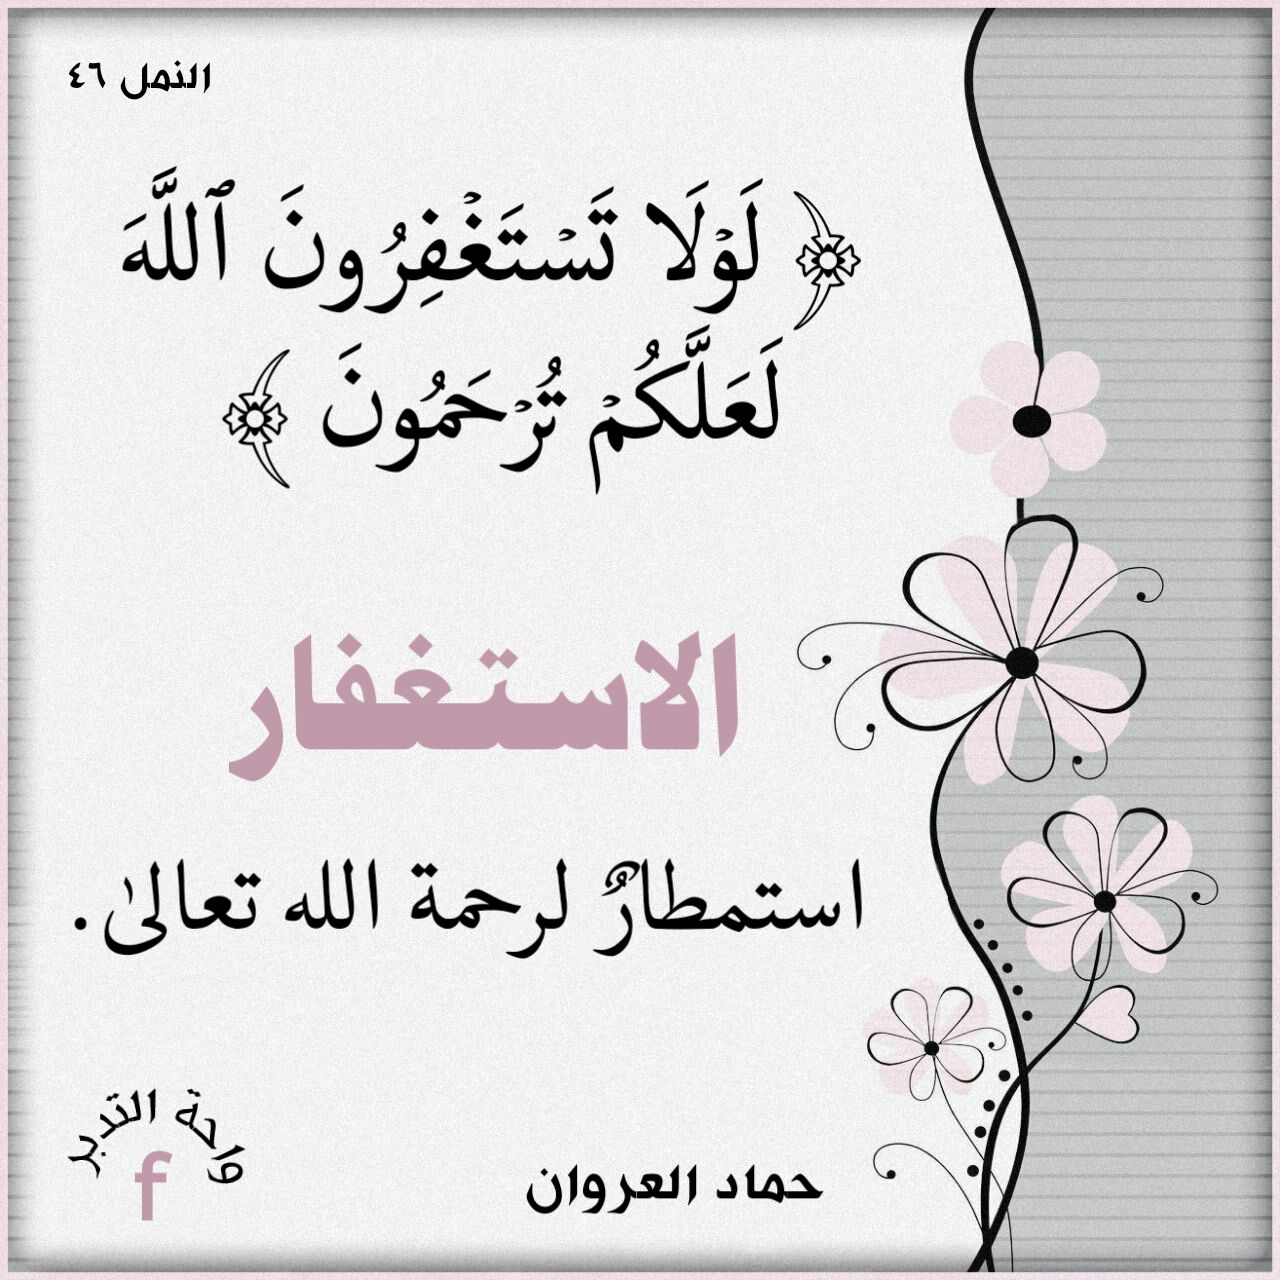 النمل ٤٦
﴿ لَوْلَا تَسْتَغْفِرُونَ ٱللَّهَ
لَعَلَّكُمْ تُرْحَمُونَ ﴾
الاستغفار
استمطارٌ لرحمة الله تعالىٰ.
واحة التدبر
f
حماد العروان